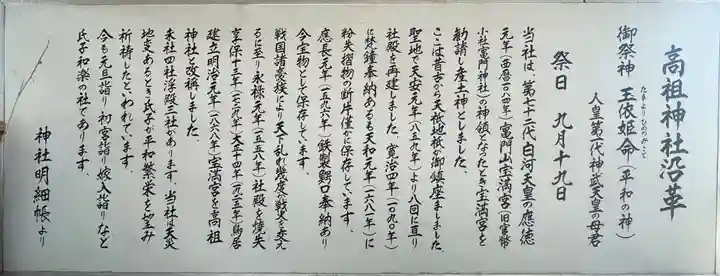 高祖神社沿革
たまよりひめのみこと
御祭神 玉依姫命(平和の神)
人皇第一代神武天皇の母君
祭日 九月十九日
当社は、第七十二代白河天皇の應徳
元年(西暦一〇八四年)竈門山宝満宮(旧官幣
小社竈門神社)の神領となったとき宝満宮を
勧請し産土神としました、
ここは昔古から天祇地祇が御鎮座ました
聖地で天安元年(八五九年)より八回に亘り
社殿を再建しました、寛治四年(一〇九〇年)
に梵鐘奉納あるも天和元年(一六八一年)に
紛失摺物の断片僅かに保存しています、
應長元年(一五九六年)鉄製鰐口奉納あり
今宝物として保存しています、
戦国諸豪族により天下乱れ幾度の戦火を交え
るに至り永禄元年(一五五八年)社殿を焼失
享保十三年(一七二九年)大正十四年(一九二五年)鳥居
建立明治元年(一八六八年)宝満宮を高祖
神社と改稱しました、
末社四社浮殿三社があります、当社は天災
地支あるとき氏子が平和繁栄を望み
祈祷したと、いわれています、
今も元旦詣り初宮詣り嫁入詣りなど
氏子和楽の社であります、
神社明細帳より